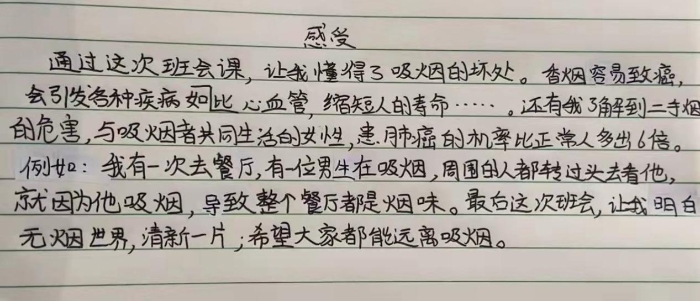 感受
通过这次班会课，让我懂得了吸烟的坏处。香烟容易致癌，
会引发各种疾病如比心血管，缩短人的寿命……。还有我了解到二手烟
的危害，与吸烟者共同生活的女性，患肺癌的机率比正常人多出6倍。
例如：我有一次去餐厅，有一位男生在吸烟，周围的人都转过头去看他，
就因为他吸烟，导致整个餐厅都是烟味。最后这次班会，让我明白
无烟世界，清新一片；希望大家都能远离吸烟。